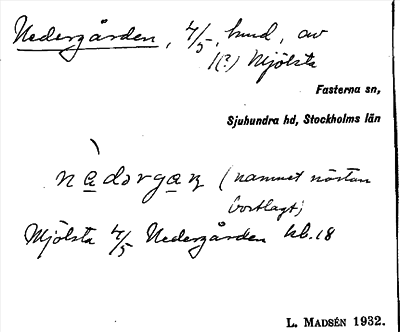 Nedergården, 4/5, hmd, av
1(?) Mjölsta
Fasterna sn,
Sjuhundra hd, Stockholms län
(namnet nästan
bortlagt;
Mjölsta 4/5 Nedergården kb. 18
L. MADSÉN 1932.